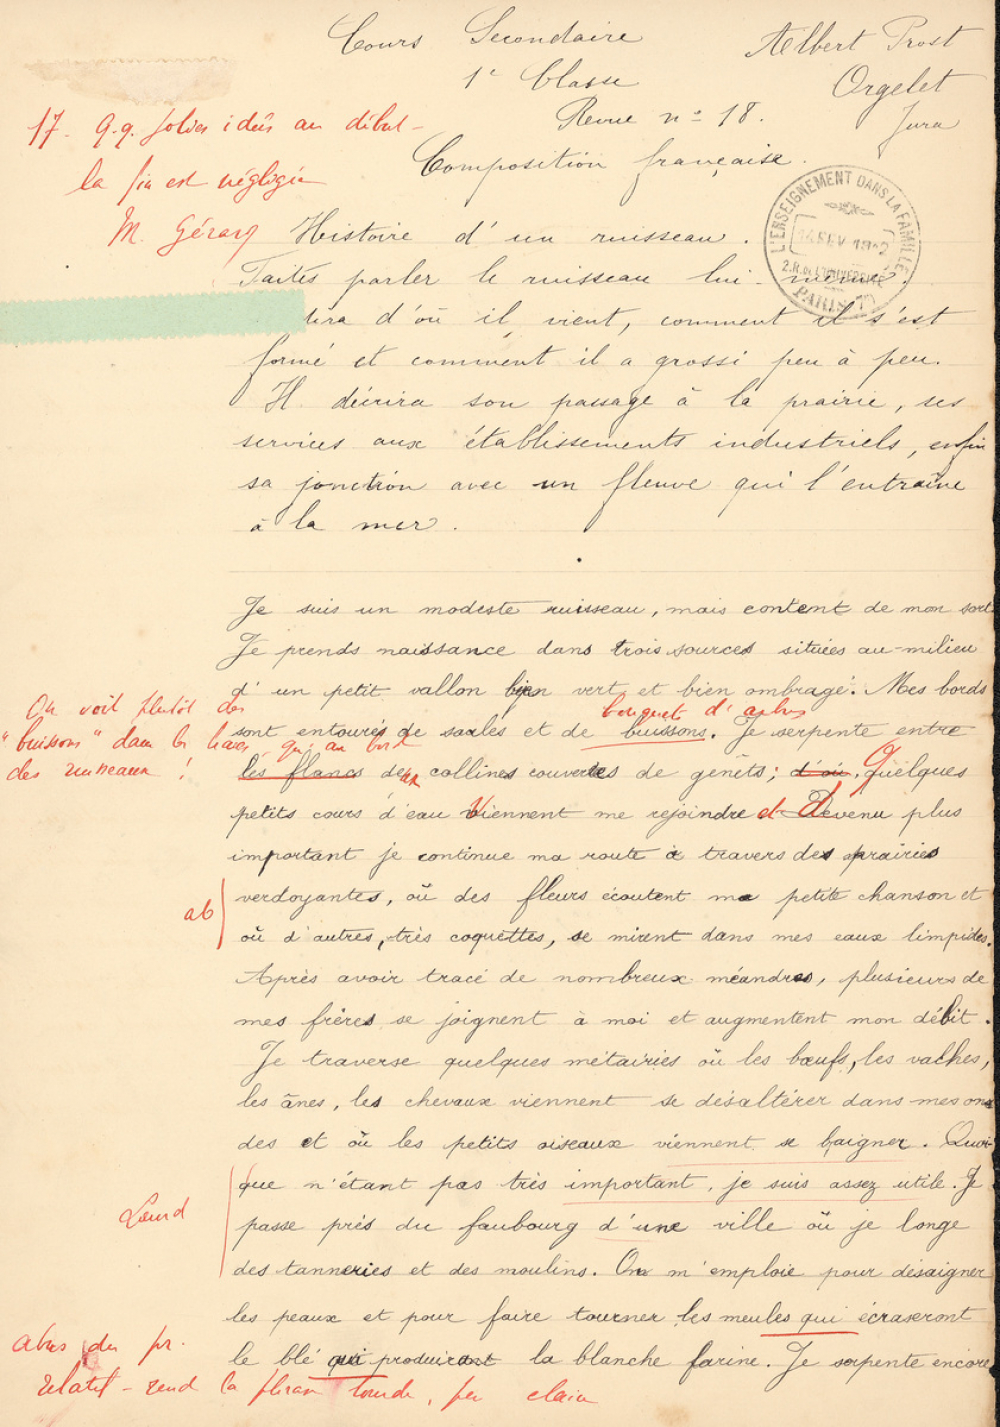 Cours Secondaire
Albert Prost
1e Classe
Orgelet
Revue n° 18.
Jura
17. q.q. jolies idées au début -
la fin est négligée
M. Gérard
Composition française.
L'ENSEIGNEMENT DANS LA FAMILLE
2.R. de L'UNIVERSITÉ
PARIS
Histoire d'un ruisseau.
Faites parler le ruisseau lui-même.
dira d'où il vient, comment il s'est
formé et comment il a grossi peu à peu.
Il décrira son passage à la prairie, ses
services aux établissements industriels, enfin
sa jonction avec un fleuve qui l'entraîne
à la mer.
Je suis un modeste ruisseau, mais content de mon sort
Je prends naissance dans trois sources situées au-milieu
d'un petit vallon bien vert et bien ombragé. Mes bords
bouquet d'arbres
sont entourés de saules et de buissons. Je serpente entre
On voit plutôt des
"buissons" dans les haies, qu'au bord
des ruisseaux !
les flancs de collines couvertes de genêts; d'où. Quelques
petits cours d'eau viennent me rejoindre et Devenu plus
important je continue ma route à travers des prairies
verdoyantes, où des fleurs écoutent ma petite chanson et
ab
où d'autres, très coquettes, se mirent dans mes eaux limpides.
Après avoir tracé de nombreux méandres, plusieurs de
mes frères se joignent à moi et augmentent mon débit.
Je traverse quelques métairies où les bœufs, les vaches,
les ânes, les chevaux viennent se désaltérer dans mes on
des et où les petits oiseaux viennent se baigner. Quoi-
que n'étant pas très important, je suis assez utile. Je
Lourd
passe près du faubourg d'une ville où je longe
des tanneries et des moulins. On m'emploie pour désaigner
les peaux et pour faire tourner les meules qui écraseront
le blé qui produiront la blanche farine. Je serpente encore
abus du pr.
relatif - rend la phrase lourde, peu claire